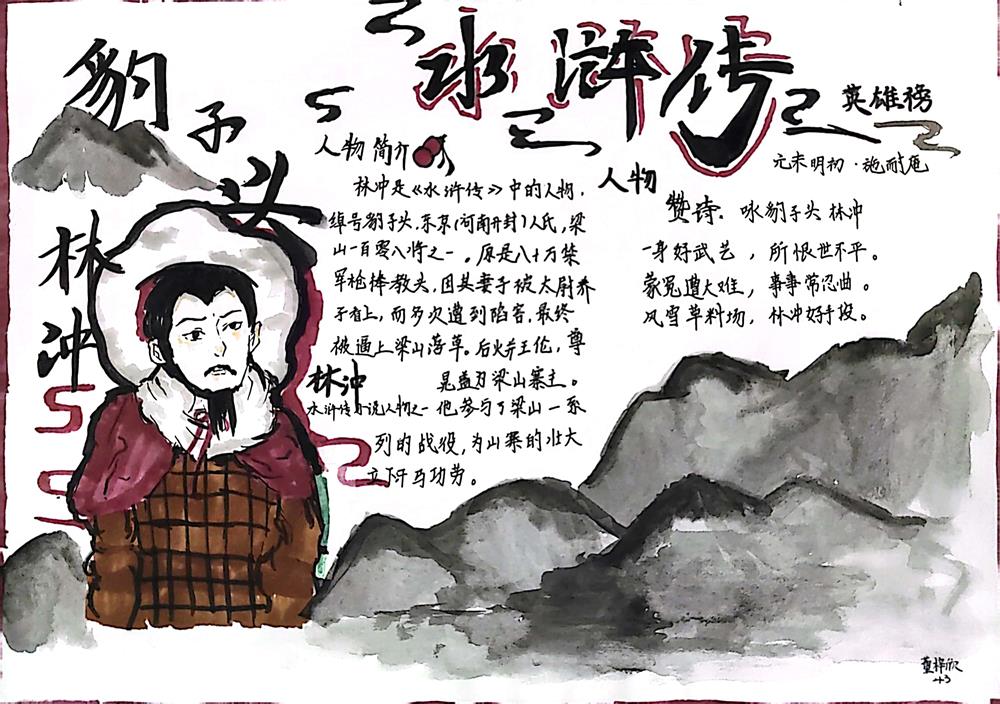 水浒传
英雄榜
元末明初·施耐庵
豹子头
林冲
人物简介
林冲是《水浒传》中的人物，
绰号豹子头，东京（河南开封）人氏，梁
山一百零八将之一。原是八十万禁
军枪棒教头，因其妻子被太尉养
子看上，而多次遭到陷害，最终
被逼上梁山落草。后火并王伦，尊
晁盖为梁山寨主。
他参与了梁山一系
列的战役，为山寨的壮大
立下汗马功劳。
林冲
水浒传小说人物之一
人物
赞诗：咏豹子头林冲
一身好武艺，所恨世不平。
蒙冤遭大难，事事常忍曲。
风雪草料场，林冲好手段。